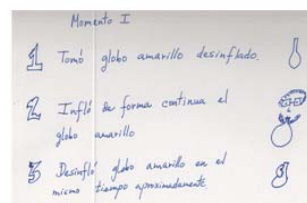 Momento I
1 Tomó globo amarillo desinflado.
2 Infló de forma continua el
globo amarillo
3 Desinfló globo amarillo en el
mismo tiempo aproximadamente